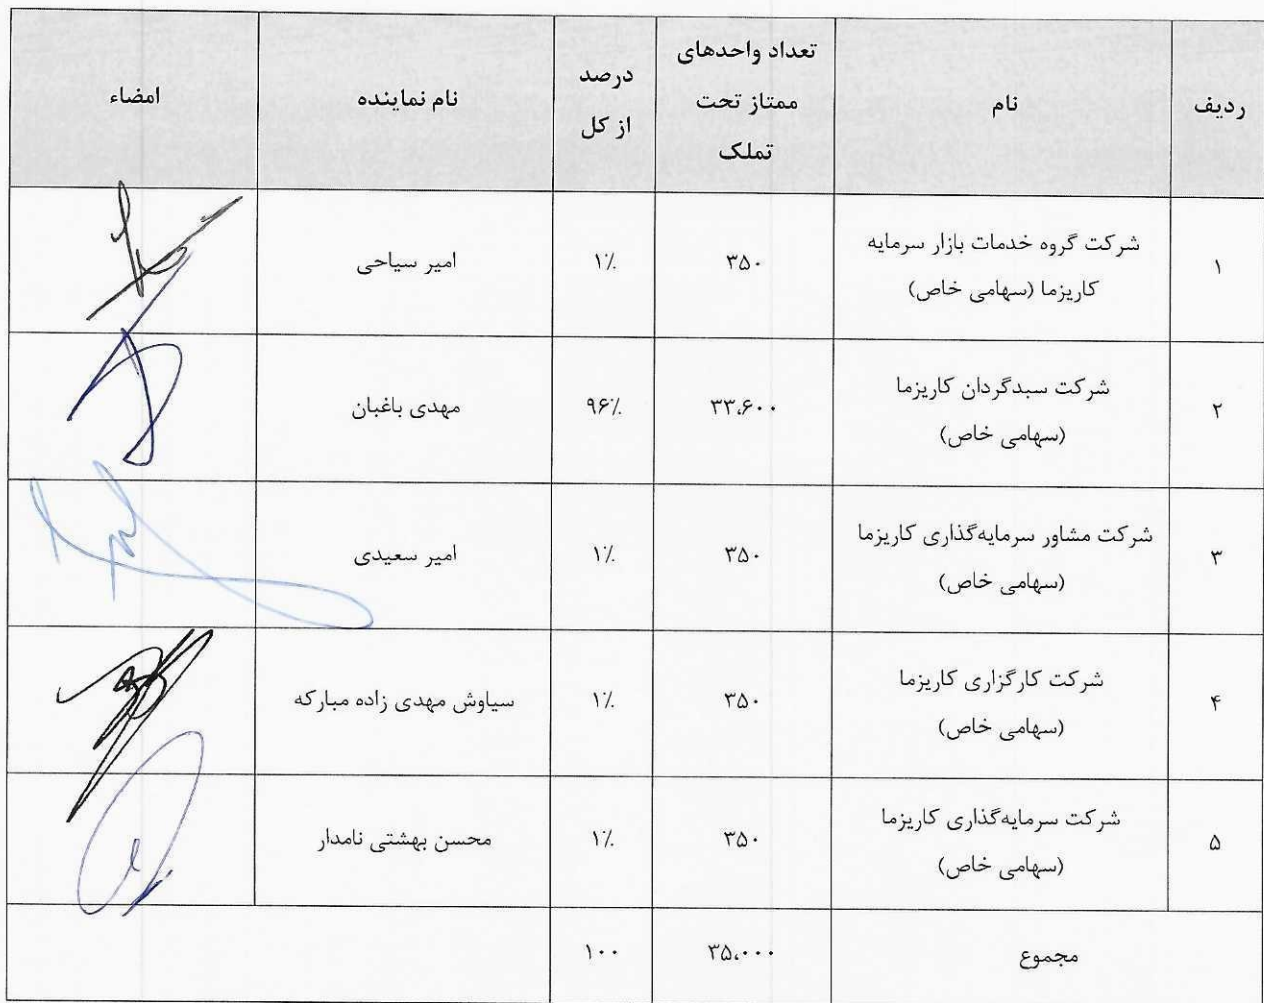 ردیف
نام
تعداد واحدهای
ممتاز تحت
تملک
درصد
از کل
نام نماینده
امضاء
۱
شرکت گروه خدمات بازار سرمایه
کاریزما (سهامی خاص)
۳۵۰
۱٪
امیر سیاحی
۲
شرکت سبدگردان کاریزما
(سهامی خاص)
۳۳،۶۰۰
۹۶٪
مهدی باغبان
۳
شرکت مشاور سرمایه‌گذاری کاریزما
(سهامی خاص)
۳۵۰
۱٪
امیر سعیدی
۴
شرکت کارگزاری کاریزما
(سهامی خاص)
۳۵۰
۱٪
سیاوش مهدی زاده مبارکه
۵
شرکت سرمایه‌گذاری کاریزما
(سهامی خاص)
۳۵۰
۱٪
محسن بهشتی نامدار
مجموع
۳۵،۰۰۰
۱۰۰